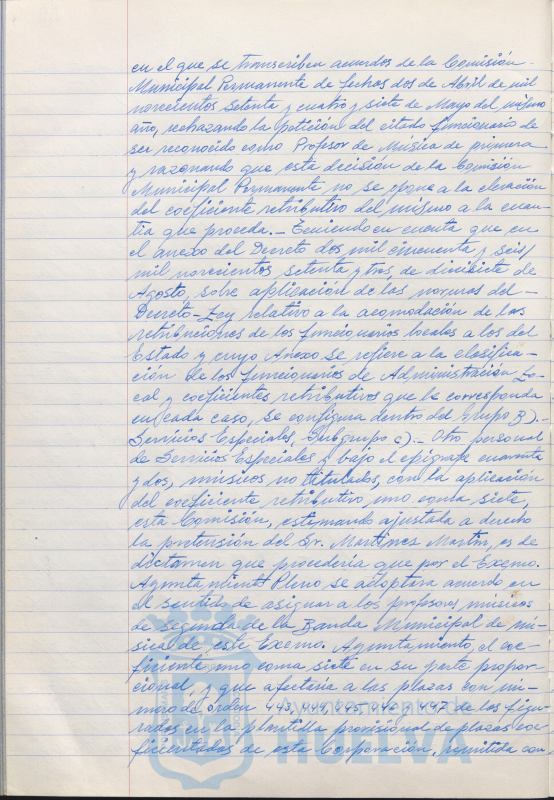 en el que se transcriben acuerdos de la Comisión
Municipal Permanente de fechas dos de Abril de mil
novecientos setenta y cuatro y siete de Mayo del mismo
año, rechazando la petición del citado funcionario de
ser reconocido como Profesor de Música de primera
y razonando que esta decisión de la Comisión
Municipal Permanente no se opone a la elevación
del coeficiente retributivo del mismo a la cuan-
tía que proceda.- Teniendo en cuenta que en
el anexo del Decreto dos mil cincuenta y seis/
mil novecientos setenta y tres, de diecisiete de
Agosto, sobre aplicación de las normas del -
Decreto-Ley relativo a la acomodación de las
retribuciones de los funcionarios locales a los del
Estado y cuyo Anexo se refiere a la clasifica-
ción de los funcionarios de Administración Lo-
cal y coeficientes retributivos que le corresponda
en cada caso, se configura dentro del Grupo B).-
Servicios Especiales, Subgrupo c).- Otro personal
de Servicios Especiales y bajo el epígrafe cuarenta
y dos, músicos no titulados, con la aplicación
del coeficiente retributivo, uno coma siete,
esta Comisión, estimando ajustada a derecho
la pretensión del Sr. Martínez Martín, es de
dictamen que procedería que por el Excmo.
Ayuntamiento Pleno se adoptara acuerdo en
el sentido de asignar a los profesores músicos
de segunda de la Banda Municipal de mú-
sica de este Excmo. Ayuntamiento, el coe-
ficiente uno coma siete en su parte propor-
cional, y que afectaría a las plazas con nú-
mero de orden 443, 444, 445, 446 y 447 de los figu-
rados en la plantilla provisional de plazas coe-
ficientadas de esta Corporación, remitida con
Ayuntamiento de
HUELVA